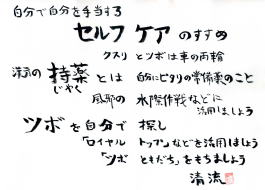 自分で自分を手当する
セルフケアのすすめ
クスリとツボは車の両輪
漢方の持薬とは 自分にピタリの常備薬のこと
じやく
風邪の水際作戦などに
活用しましょう
ツボを自分で探し
「ロイヤルトップ」などを活用しましょう
「ツボともだち」をもちましょう
清流